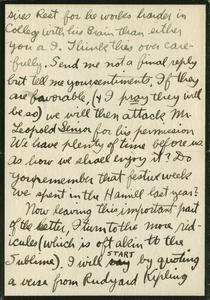 sires Rest for he works harder in
College with his Brain than either
you or I. Think this over care-
fully. Send me not a final reply
but tell me your sentiments. If they
are favorable, (& I pray they will
be so) we will then attack Mr.
Leopold Senior for his permission
We have plenty of time before us
As how we shall enjoy it? Do
you remember that festive week
we spent in the Hamill last year?
Now leaving this important part
of the letter, I turn to the more rid-
icules (which is oft akin to the
Sublime). I will START by quoting
a verse from Rudyard Kipling